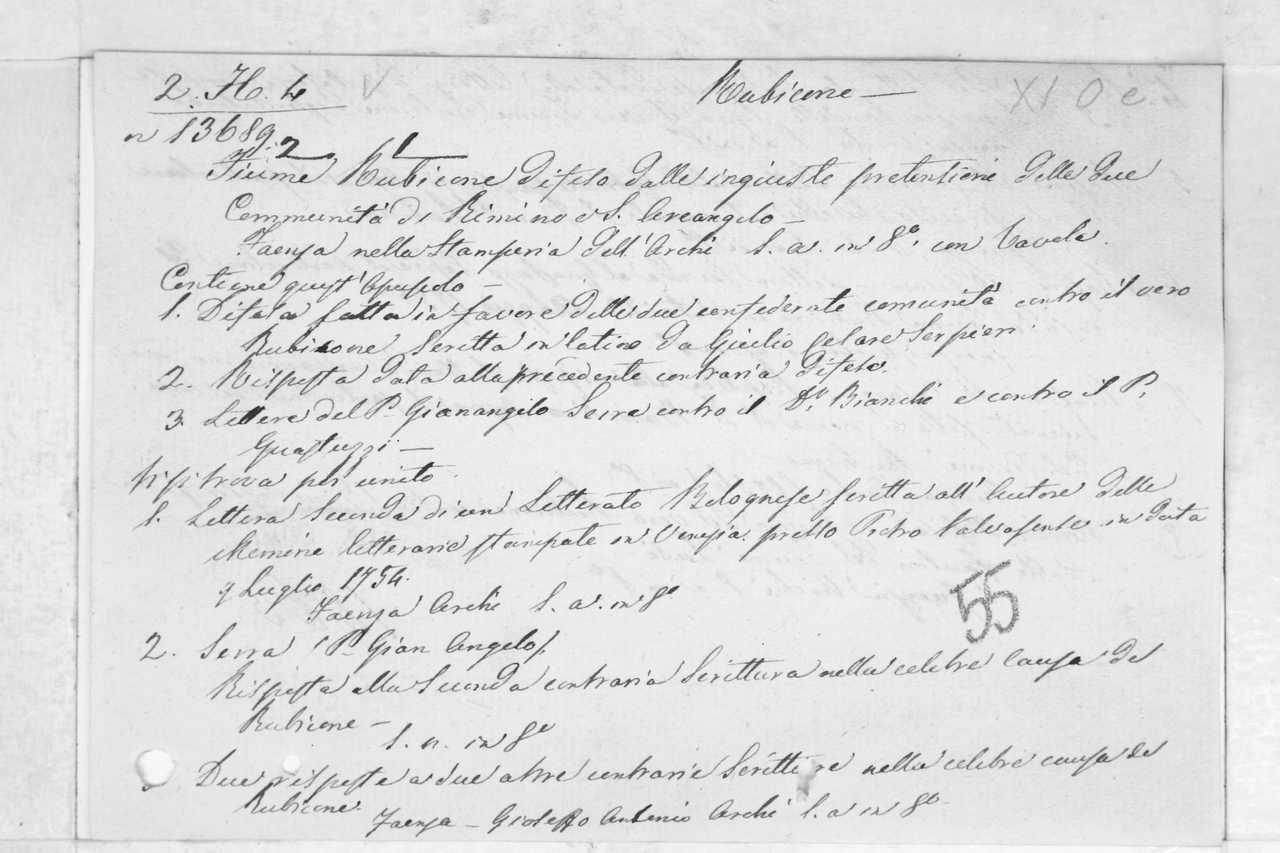 2. H. 4 V Rubicone — XI O e.
n 13689.
2 1
Fiume Rubicone difeso dalle ingiuste pretensioni delle due
Communità di Rimino e S. Arcangelo —
Faenza nella Stamperia dell'Archi S. a. in 8º. con Tavola.
Contiene quest'Opusculo —
1. Difesa fatta in favore delle due confederate comunità contro il vero
Rubicone scritta in latino da Giulio Cesare Serpieri.
2. Risposta data alla precedente contraria difesa.
3. Lettere del P. Gianangelo Serra contro il Dr. Bianchi e contro il P.
Guastuzzi —
Vi si trova pur unito.
1. Lettera Seconda di un Letterato Bolognese scritta all'Autore delle
Memorie letterarie stampate in Venezia presso Pietro Valvasense in data
9 Luglio 1754.
Faenza Archi S. a. in 8º
2. Serra (P. Gian Angelo)
Risposta alla Seconda contraria Scrittura nella celebre causa del
Rubicone —
S. n. in 8º
55
Due risposte a due altre contrarie Scritture nella celebre causa del
Rubicone.
Faenza — Gioseffo Antonio Archi S. a in 8º.